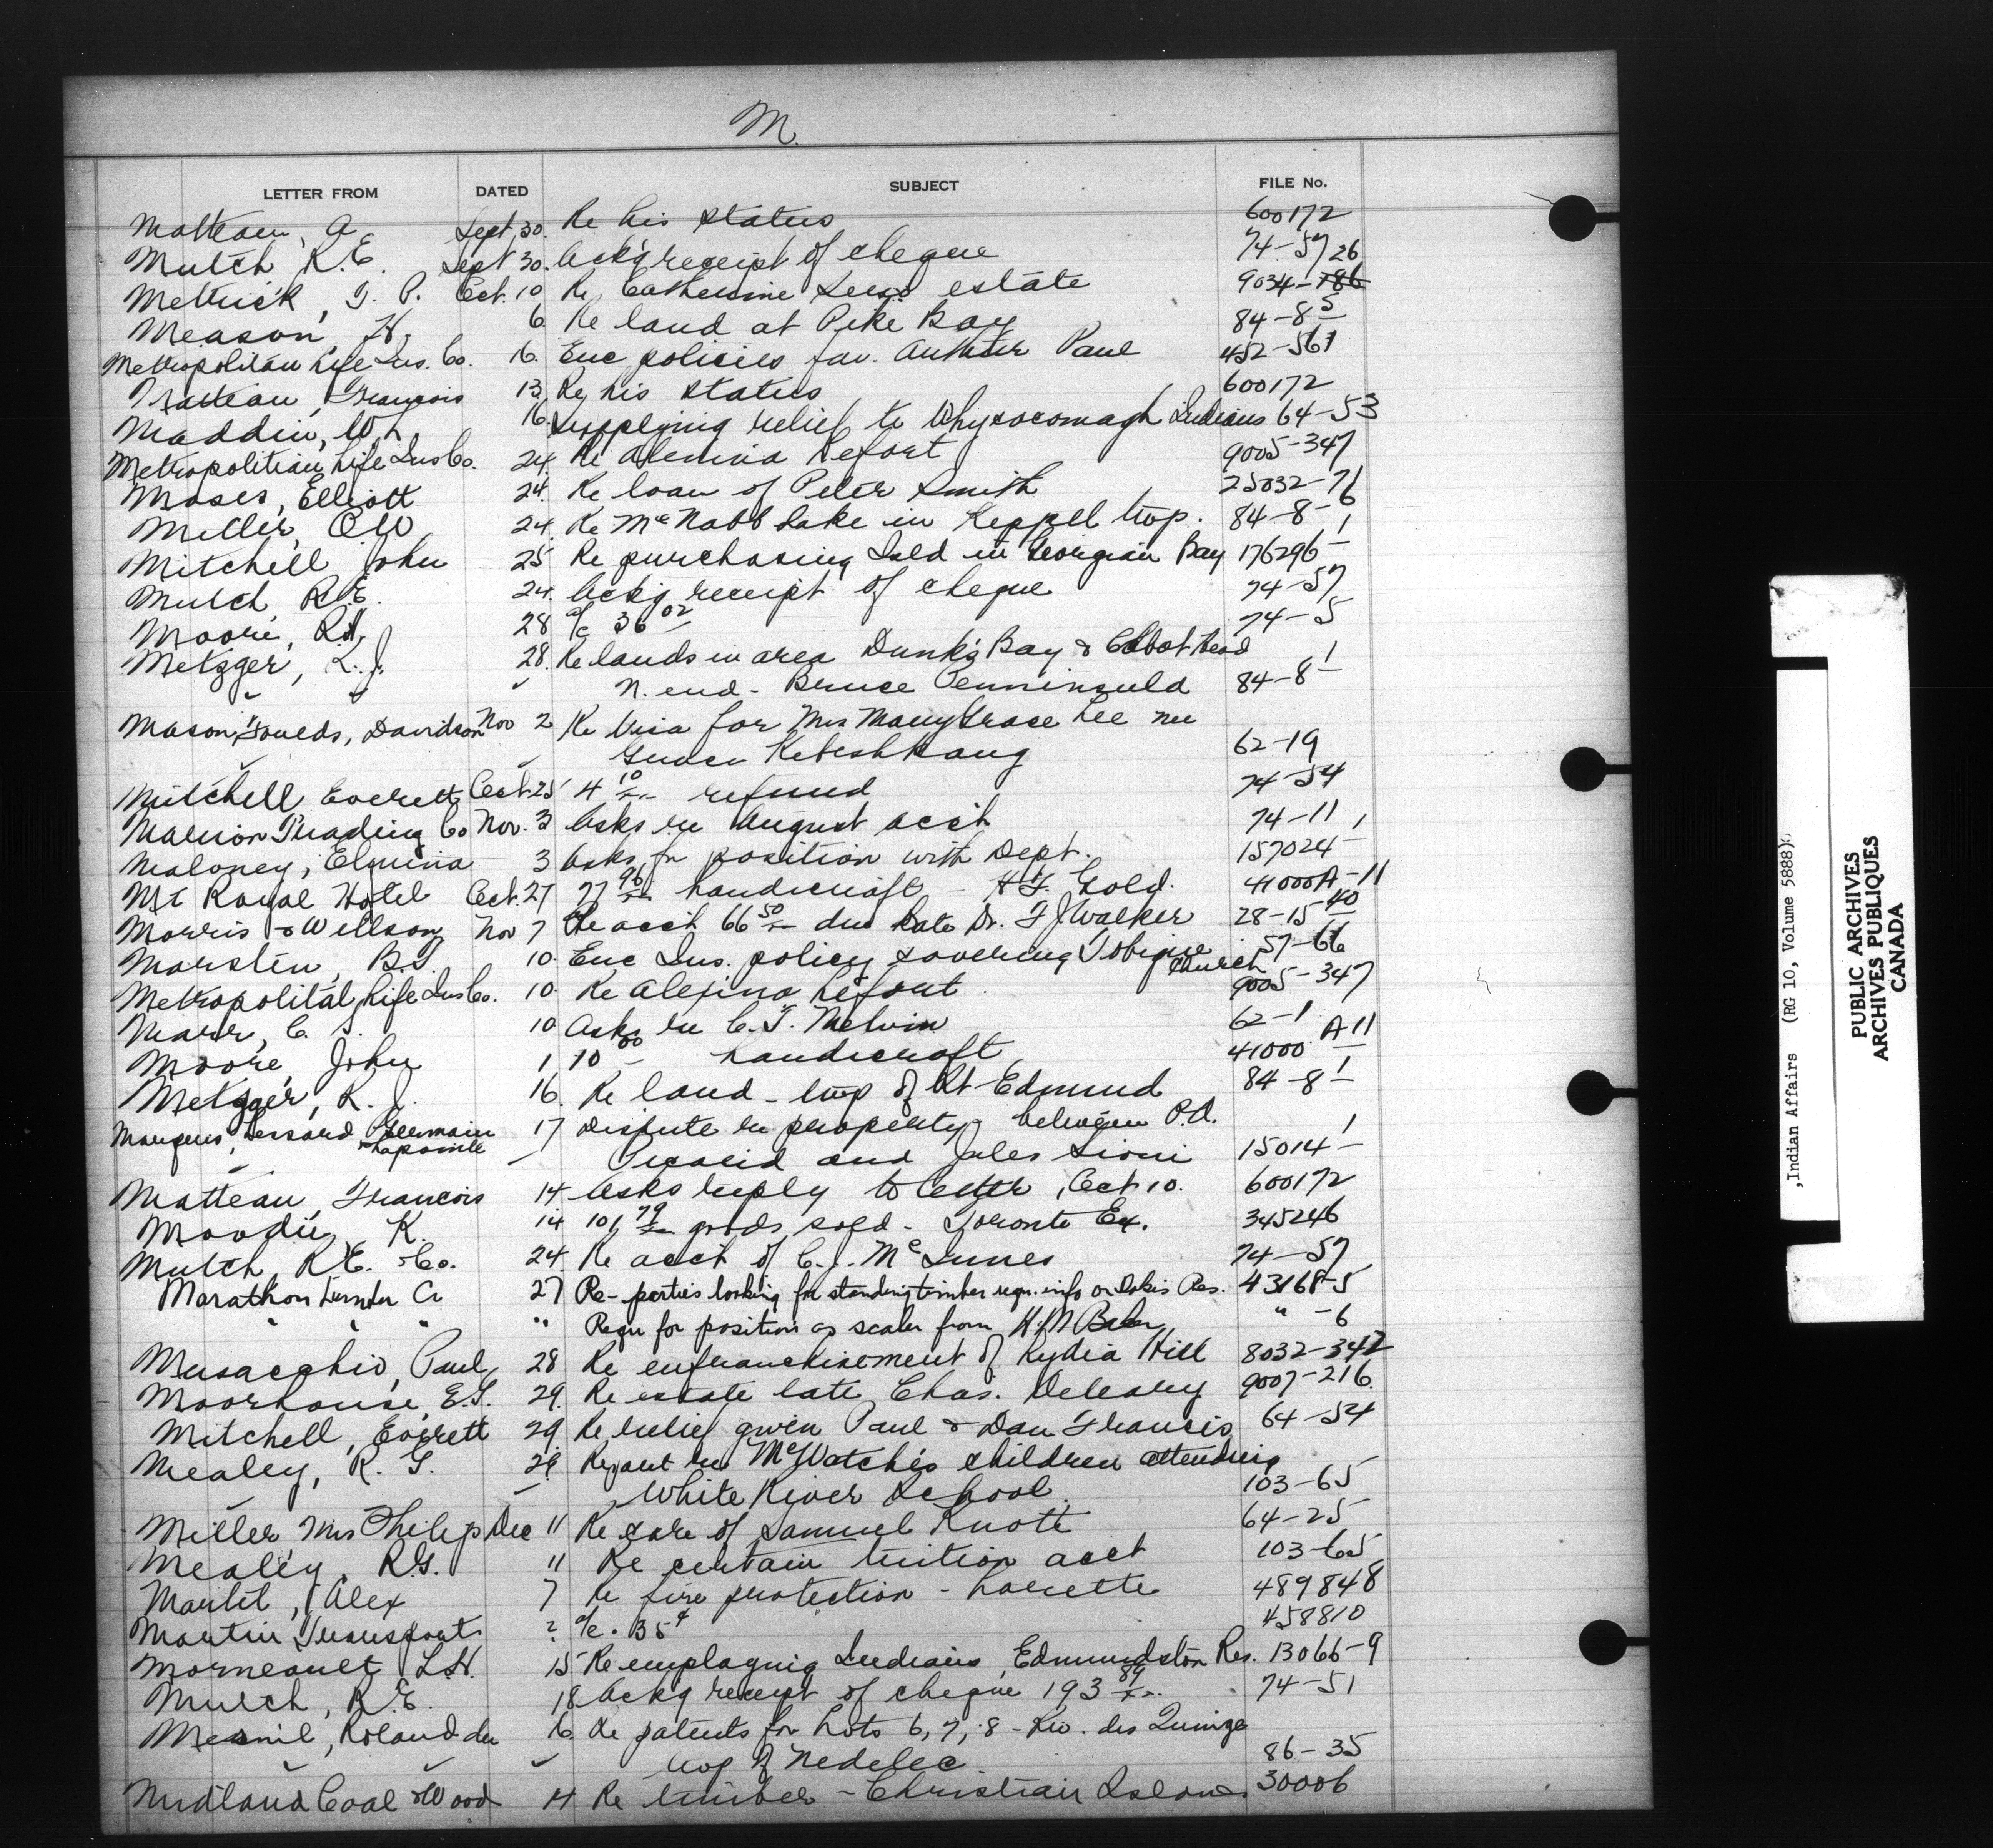 M.
LETTER FROM DATED SUBJECT FILE No.
Matteau, A. Sept. 30. Re his status 600172
Mutch R.E. Sept 30. Ackg receipt of cheque 74-57 26
Metrick, G. P. Oct. 10 Re Catherine estate 9034-786
Meason, H. 6 Re land at Pike Bay 84-8-5
Metropolitan Life Ins. Co. 16. Enc policies fav. Arthur Paul 452-561
Matteau, Francois 13 Re his status 600172
Maddin, W. 16. Supplying relief to Whycocomagh Indians 64-53
Metropolitian Life Ins Co. 24. Re Alexina Lefort 9005-347
Moses, Elliott 24. Re loan of Peter Smith 25032-71
Miller, O.W 24. Re McNabb Lake in Keppel twp. 84-8-6
Mitchell John 25 Re purchasing Isld in Georgian Bay 176296-1
Mutch R.E. 24. Ackg receipt of cheque 74-57
Moore, R.H. 28 a/c 36 02 74-5
Metzger, L. J. 28. Re lands in area Dunks Bay & Cabot Head
" " " N. end - Bruce Penninsula 84-8-1
Mason, Foulds, Davidson Nov 2 Re Visa for Mrs Mary Grace Lee nee
" " Kebeshkang 62-19
Mitchell Everett Oct. 25 4 10 refund 74-54
Marion Trading Co Nov. 3 Asks re August acct 74-11
Maloney, Elmina 3 Asks for position with Dept. 157024-1
Mt Royal Hotel Oct. 27 27 96 handicraft - Gold. 41000A-11
Morris & Willson Nov 7 Re acct 66 50 due Late Dr. F J Walker 28-15-40
Marsten, B.T. 10. Enc Ins. policy covering Tobique Church 57-66
Metropolital Life Ins Co. 10. Re Alexina Lefort 9005-347
Marr, C. S. 10 Asks re C.T. Melvin 62-1
Moore, John 1 10 00 - handicraft 41000 A11
Metzger, R. J. 16. Re land - twp of St Edmund 84-8-1
Marquis, Lessard Germain & Lapointe 17 Dispute re property between P.A.
" " Picard and Jules Sioui 15014-1
Matteau, Francois 14 Asks reply to letter, Oct 10. 600172
Moodie, K. 14 101, 79 goods sold - Toronto Ex. 345246
Mutch R.E. & Co. 24. Re acct of C.J. McInnes 74-57
Marathon Lumber Co 27 Re- parties looking for standing timber requ. info on Dokis Res. 43168-5
" " " " Requ for position as scaler from H.M Baker " -6
Musacchio, Paul 28 Re enfranchisement of Lydia Hill 8032-342
Moorhouse, E.T. 29. Re estate late Chas. Deleary 9007-216
Mitchell, Everett 29 Re relief given Paul & Dan Francis 64-54
Mealey, R. G. 29. Re McWatch's children attending
" " White River School. 103-65
Miller, Mrs Philip Dec 11 Re care of Samuel Knott 64-25
Mealey, R.G. 11 Re certain tuition acct 103-65
Martel, Alex 7 Re fire protection - Lorette 489848
Martin Transports ? a/c. 35¢ 458810
Morneault L.H. 15 Re employing Indians, Edmundston Res. 13066-9
Mutch, R.E. 18 Ackg receipt of cheque 193 89 74-51
Mesnil, Roland du 16 Re patents for Lots 6, 7, 8 - Riv. des Quinze
" " " twp of Nedelec 86-35
Midland Coal & Wood 14 Re timber - Christian Island 30006
,Indian Affairs (RG 10, Volume 5888)
PUBLIC ARCHIVES
ARCHIVES PUBLIQUES
CANADA